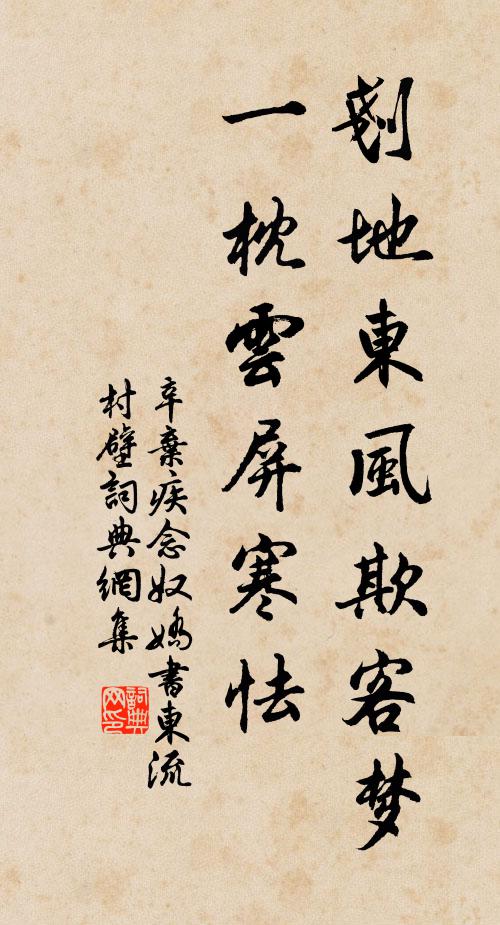 剗地東風欺客梦
一枕雲屏寒怯
辛棄疾念奴嬌書東流
村壁詞典網集
詞典
网印